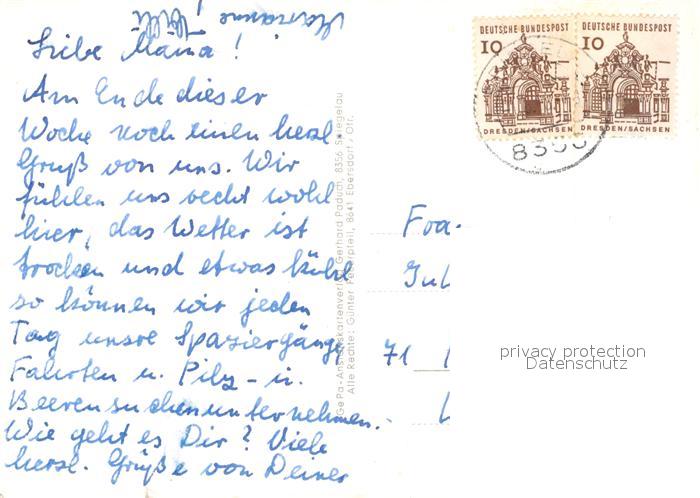 Liebe Mama!
Am Ende dieser
Woche noch einen herzl.
Gruß von uns. Wir
fühlen uns recht wohl
hier, das Wetter ist
trocken und etwas kühl
so können wir jeden
Tag unsre Spaziergänge
Fahrten u. Pilz- u.
Beerensuchen unternehmen.
Wie geht es Dir? Viele
herzl. Grüße von Deiner
GePa-Ansichtskartenverlag Gerhard Paduch, 8356 Spiegelau
Alle Rechte: Günter Federpfeil, 8641 Ebersdorf / Ofr.
DEUTSCHE BUNDESPOST
10
DRESDEN/SACHSEN
DEUTSCHE BUNDESPOST
10
DRESDEN/SACHSEN
8356
71
privacy protection
Datenschutz